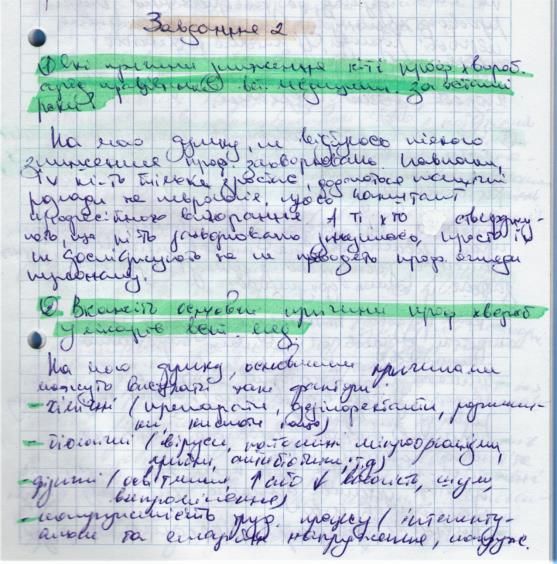 Завдання 2
1) Які причини зниження к-ті проф. хвороб.
серед працівників вет. медицини за останні
роки?
На мою думку, не відбулося ніякого
зниження проф. захворювань. Навпаки,
їх кі-ть тільки зростає, додаються психічні
розлади як неврологія,
професійного вигорання. А ті хто стверджу-
ють, що кі-ть захворювань знизилась, просто їх
не досліджують та не проводять проф. огляди
персоналу.
2) Вкажіть основні причини проф. хвороб
у лікарів вет. мед.
На мою думку, основними причинами
можуть виступати такі фактори:
- хімічні (препарати, дезінфектанти, розчинни-
ки, кислоти)
- біологічні (віруси, патогенні мікроорганізми,
антибіотики, т.д)
- фізичні (освітлення, ↑ або ↓ вологість, шум,
випромінення)
- напруженість труд. процесу (інтелекту-
альні та емоційні напруження,